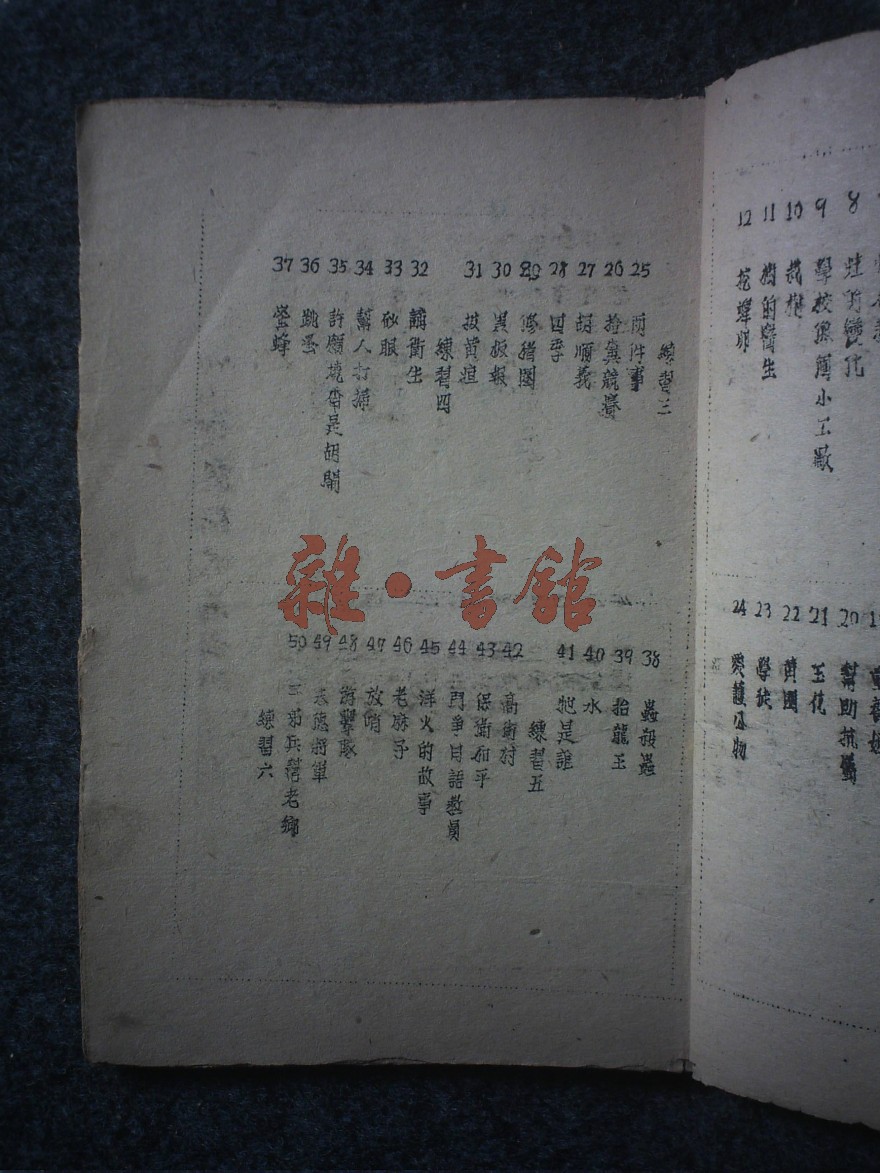 8 蛙的變化
9 學校煤
10 栽樹
11 豬的衛生
12 挖蝗卵
20 幫助抗屬
21 玉花
22 菜園
23 學徒
24 愛護公物
練習三
25 兩件事
26 拾糞競賽
27 胡順義
28 四季
29 修豬圈
30 黑板報
31 拔黃疸
練習四
32 講衛生
33 砂眼
34 幫人打掃
35 許願燒香是胡鬧
36 跳蚤
37 螢蜂
38 蟲殺蟲
39 抬龍王
40 水
41 牠是誰
練習五
42 高街村
43 保衛和平
44 鬥爭日語教員
45 洋火的故事
46 老麻子
47 放哨
48 游擊隊
49 朱德將軍
50 三弟兵幫老鄉
練習六
雜·書館